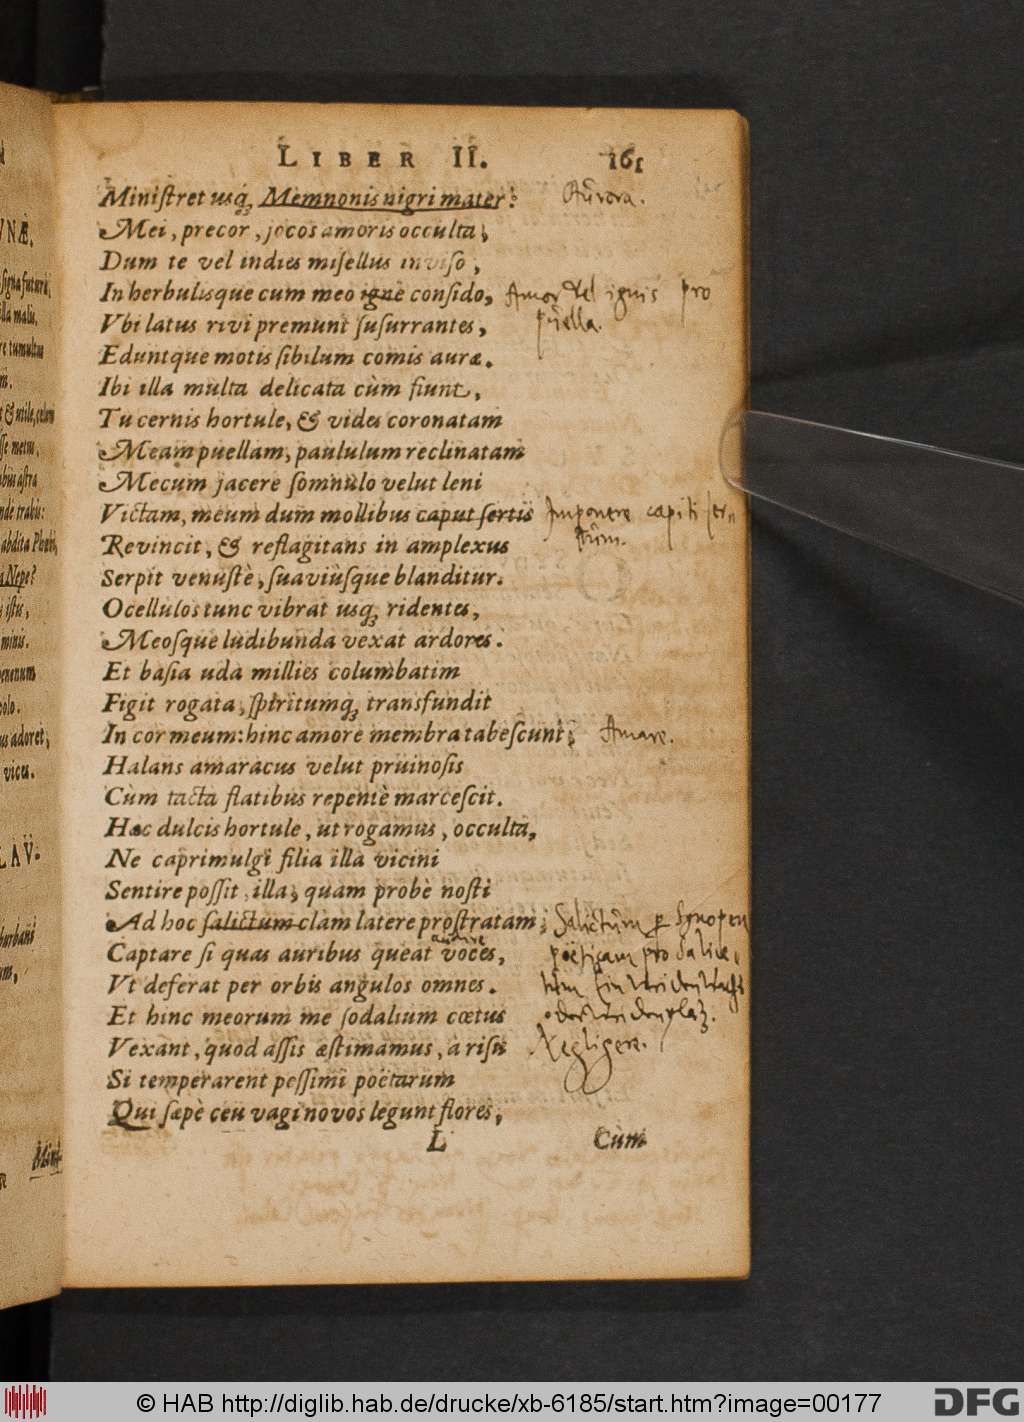 LIBER II. 161
Miniſtret uſq́; Memnonis nigri mater: Aurora.
Mei, precor, jocos amoris occulta,
Dum te vel indies miſellus inviſo,
In herbulisque cum meo igne conſido, Amor vel ignis pro
puella.
Vbi latus rivi premunt ſuſurrantes,
Eduntque motis ſibilum comis auræ.
Ibi illa multa delicata cùm fiunt,
Tu cernis hortule, & vides coronatam
Meam puellam, paululum reclinatam
Mecum jacere ſomnulo velut leni
Victam, meum dum mollibus caput ſertis Imponere capiti ſer-
tum.
Revincit, & reflagitans in amplexus
Serpit venuſtè, ſuaviùſque blanditur.
Ocellulos tunc vibrat uſq́; ridentes,
Meoſque ludibunda vexat ardores.
Et baſia uda millies columbatim
Figit rogata, ſpiritumq́; transfundit
In cor meum: hinc amore membra tabeſcunt; Amare.
Halans amaracus velut pruinoſis
Cùm tacta flatibus repentè marceſcit.
Hæc dulcis hortule, ut rogamus, occulta,
Ne caprimulgi filia illa vicini
Sentire poſſit, illa, quam probè noſti
Ad hoc ſalictum clam latere proſtratam; Salictum per Synopen
audire
Captare ſi quas auribus queat voces, poëticam pro Salice,
Vt deferat per orbis angulos omnes.
Et hinc meorum me ſodalium cœtus oder weidenplaz.
Vexant, quod aſſis æſtimamus, à riſu Negligere.
Si temperarent peſſimi poëtarum
Qui ſæpè ceu vagi novos legunt flores,
L Cùm
© HAB http://diglib.hab.de/drucke/xb-6185/start.htm?image=00177
DFG